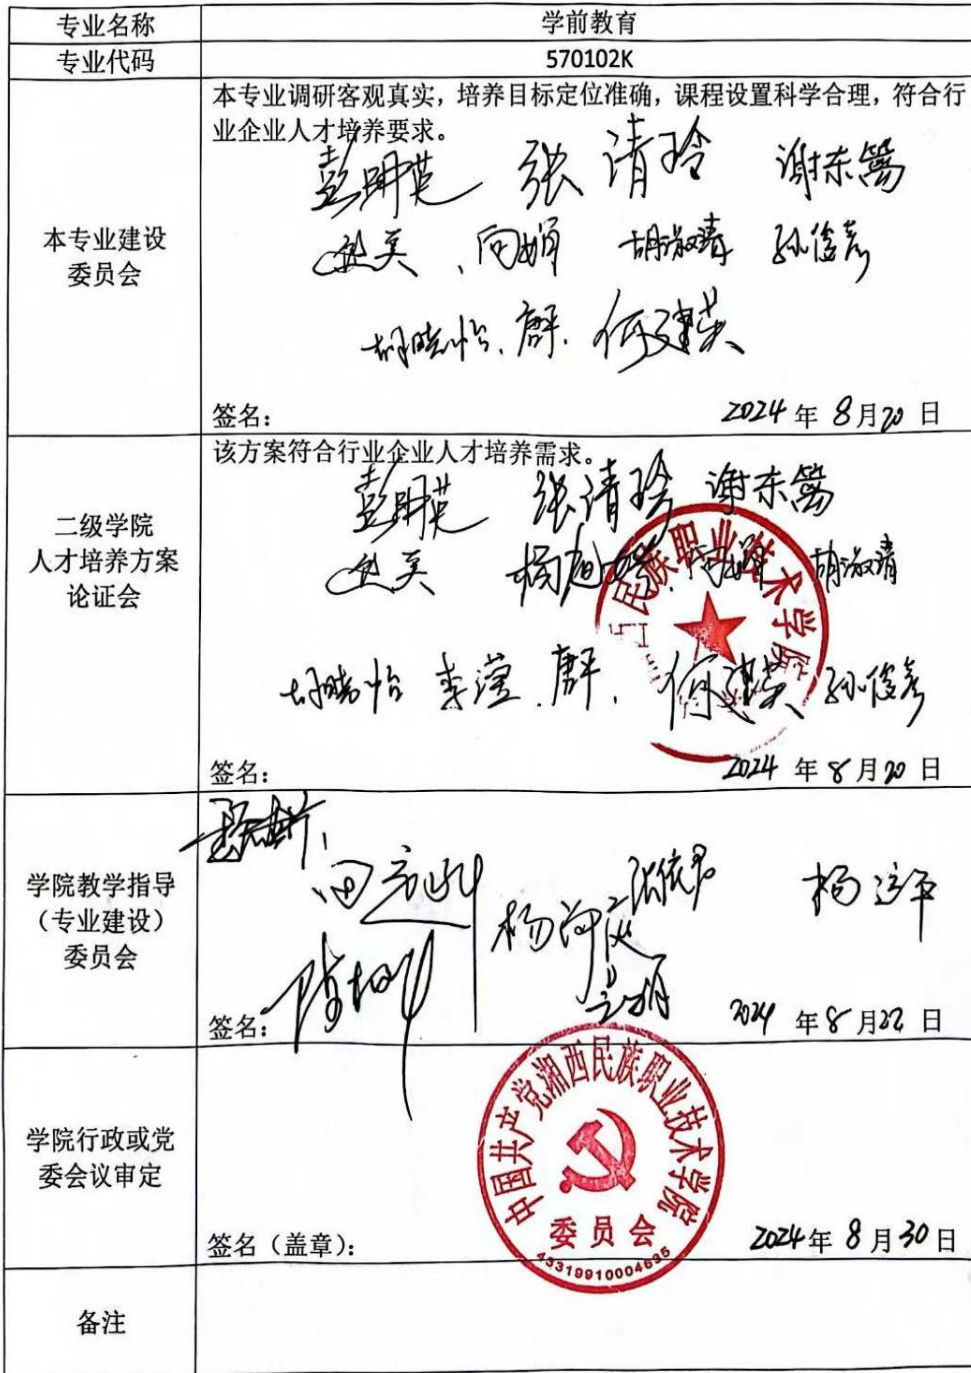 专业名称 学前教育
专业代码 570102K
本专业建设委员会
本专业调研客观真实，培养目标定位准确，课程设置科学合理，符合行
业企业人才培养要求。
张清玲 谢东篱
向娟 胡淑靖 孙俊彦
胡晓怡、唐平、何建英
签名： 2024 年 8 月 20 日
二级学院
人才培养方案
论证会
该方案符合行业企业人才培养需求。
张清玲 谢东篱
胡淑靖
胡晓怡 李滢、唐平、何建英 孙俊彦
民族职业技术学院
签名： 2024 年 8 月 20 日
学院教学指导
（专业建设）
委员会
签名： 2024 年 8 月 22 日
学院行政或党
委会议审定
中国共产党湘西民族职业技术学院
委员会
签名（盖章）： 2024 年 8 月 30 日
备注